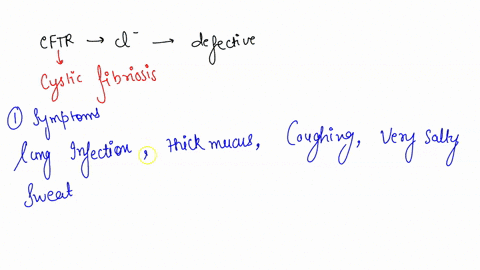 CFTR → Cl⁻ → defective
↓
Cystic fibriosis
① Symptoms
lung Infection, thick mucus, Coughing, Very salty
Sweat